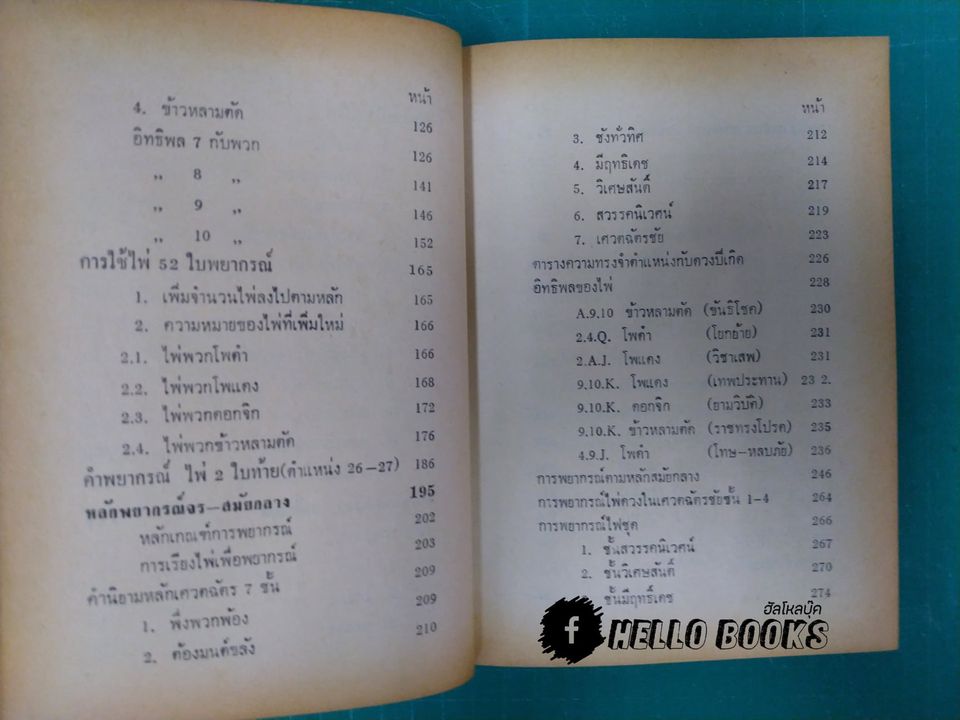 หน้า
4. ข้าวหลามตัด 126
อิทธิพล 7 กับพวก 126
,, 8 ,, 141
,, 9 ,, 146
,, 10 ,, 152
การใช้ไพ่ 52 ใบพยากรณ์ 165
1. เพิ่มจำนวนไพ่ลงไปตามหลัก 165
2. ความหมายของไพ่ที่เพิ่มใหม่ 166
2.1. ไพ่พวกโพดำ 166
2.2. ไพ่พวกโพแดง 168
2.3. ไพ่พวกดอกจิก 172
2.4. ไพ่พวกข้าวหลามตัด 176
คำพยากรณ์ ไพ่ 2 ใบท้าย(ตำแหน่ง 26–27) 186
หลักพยากรณ์จร–สมัยกลาง 195
หลักเกณฑ์การพยากรณ์ 202
การเรียงไพ่เพื่อพยากรณ์ 203
คำนิยามหลักเศวตฉัตร 7 ชั้น 209
1. พึ่งพวกพ้อง 209
2. ต้องมนต์ขลัง 210
หน้า
3. ชังทั่วทิศ 212
4. มีฤทธิ์เดช 214
5. วิเศษสันต์ 217
6. สวรรคนิเวศน์ 219
7. เศวตฉัตรชัย 223
ตารางความทรงจำตำแหน่งกับดวงปีเกิด 226
อิทธิพลของไพ่ 228
A.9.10 ข้าวหลามตัด (ขันธิโชค) 230
2.4.Q. โพดำ (โยกย้าย) 231
2.A.J. โพแดง (วิชาเสพ) 231
9.10.K. โพแดง (เทพประทาน) 23 2.
9.10.K. ดอกจิก (ยามวิบัติ) 233
9.10.K. ข้าวหลามตัด (ราชทรงโปรด) 235
4.9.J. โพดำ (โทษ–หลบภัย) 236
การพยากรณ์ตามหลักสมัยกลาง 246
การพยากรณ์ไพ่ดวงในเศวตฉัตรชัยชั้น 1–4 264
การพยากรณ์ไพ่ชุด 266
1. ชั้นสวรรคนิเวศน์ 267
2. ชั้นวิเศษสันต์ 270
ชั้นมีฤทธิ์เดช 274
ฮัลโหลบุ๊ค
f HELLO BOOKS